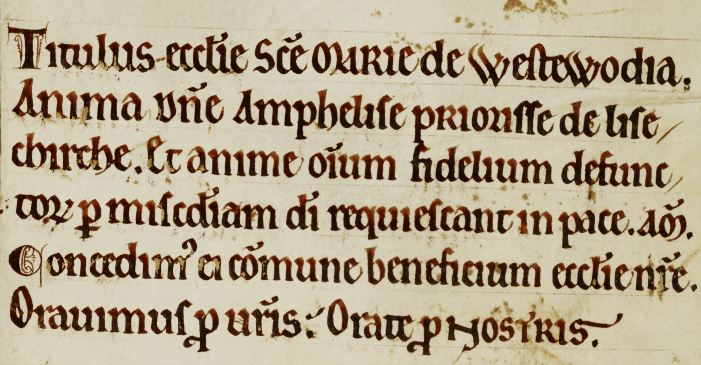 Titulus ecclīe Scē MARIE de Westewodia.
Anima dn̄e Amphelise prioRisse de lise/
chirche. Et anime oīum fidelium defunc/
toꝝ ꝑ misc̄diam dī requiescant in pace. am̄.
Concedimꝰ ei cōmune beneficium ecclīe nr̄e.
Orauimus ꝑ ur̄is: Orate ꝑ NOSTRIS.